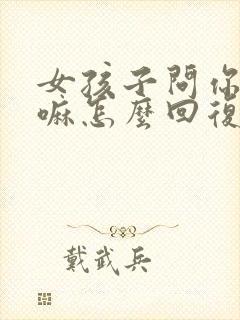 女孩子問你
嘛怎麼回復
戴武兵